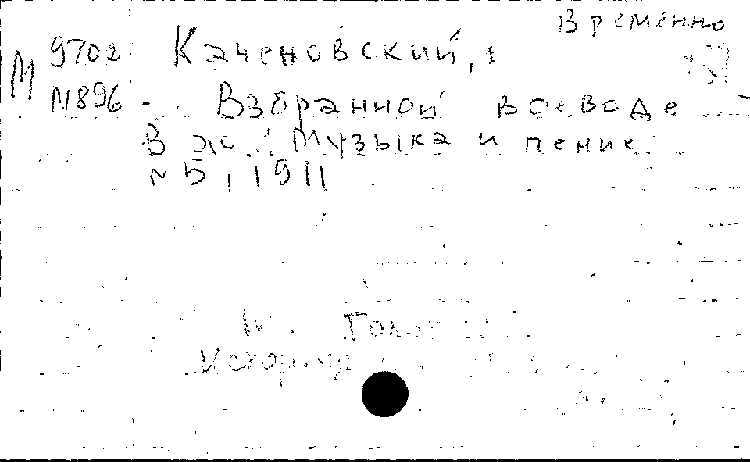 Временно
М 9702 Каченовский,
М896 Взбранной воеводе
В ж. Музыка и пение
№ 5, 1911